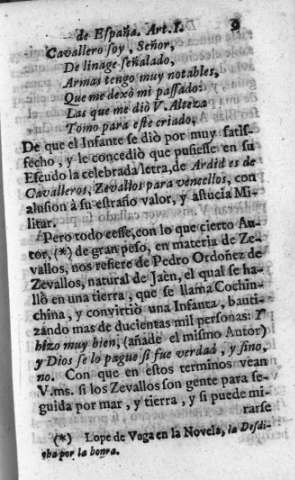 de España. Art. I. 9
Cavallero soy, Señor,
De linage señalado,
Armas tengo muy notables,
Que me dexò mi passado:
Las que me diò V. Alteza
Tomo para este criado,
De que el Infante se diò por muy satis-
fecho, y le concediò que pusiesse en su
Escudo la celebrada letra, de Ardid es de
Cavalleros, Zevallos para vencellos, con
alusion à su estraño valor, y astucia Mi-
litar.
Pero todo cesse, con lo que cierto Au-
tor, (*) de gran peso, en materia de Ze-
vallos, nos refiere de Pedro Ordoñez de
Zevallos, natural de Jaèn, el qual se ha-
llò en una tierra, que se llama Cochin-
china, y convirtiò una Infanta, bauti-
zando mas de ducientas mil personas: Y
hizo muy bien, (añade el mismo Autor)
y Dios se lo pague si fue verdad, y sino,
no. Con que en estos terminos vean
V.ms. si los Zevallos son gente para se-
guida por mar, y tierra, y si puede mi-
rarse
(*) Lope de Vega en la Novela, la Desdi-
cha por la honra.